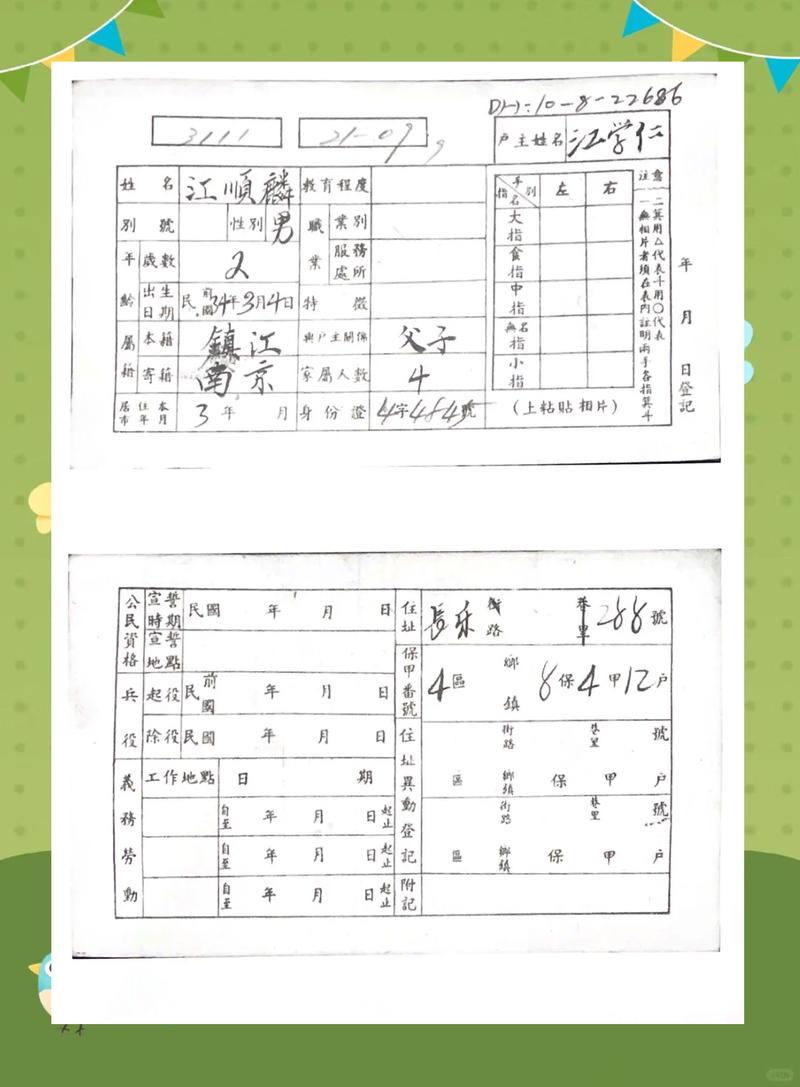 DH:10-8-22686
3111 21-09
户主姓名 江学仁
姓名 江順麟 教育程度
別號 性別 男 職業 業別
年齡 歲數 2 服務處所
出生日期 民前國 34年3月4日 特徵
屬籍 本籍 鎮江 與戶主關係 父子
寄籍 南京 家屬人數 4
居住本市年月 3年 月 身份證 4字484號
指名 手別 左 右
大指
食指
中指
無名指
小指
(上粘貼相片)
注意
一無相片者須在表內註明兩手各指箕斗
二箕用△代表斗用○代表
年 月 日登記
公民資格 宣誓時期 民國 年 月 日
宣誓地點
兵役 起役 民前國 年 月 日
除役 民國 年 月 日
義務勞動 工作地點 日期
自至 年 月 日起止
自至 年 月 日起止
自至 年 月 日起止
住址 長乐 街路 巷里 288號
保甲番號 4區 鄉鎮 8保4甲12户
住址異動登記 街路 巷里 號
區 鄉鎮 保 甲 户
街路 巷里 號
區 鄉鎮 保 甲 户
附記